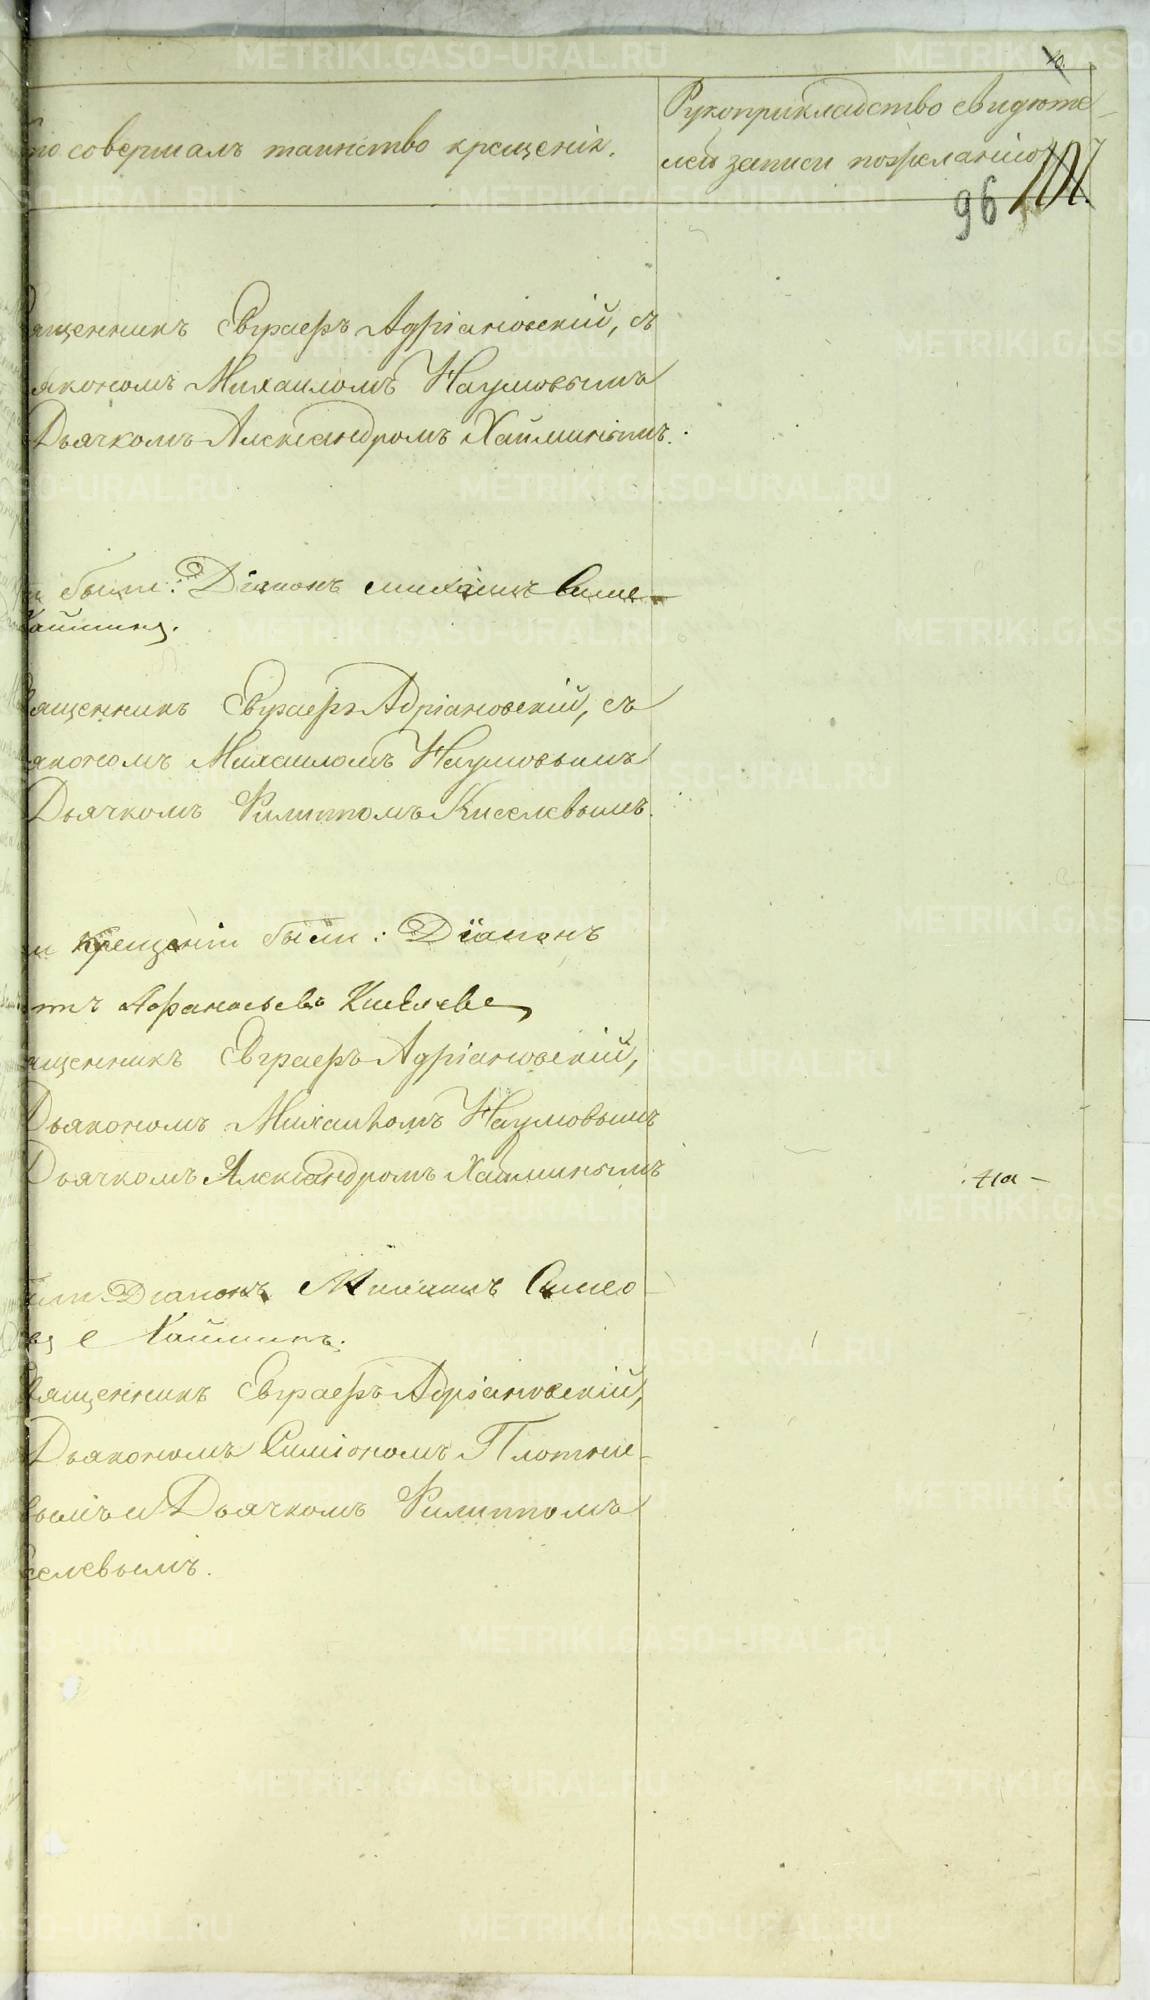 10.
то совершалъ таинство крещенія.
Рукоприкладство свидѣте-
лей записи по желанію
96 101.
ященникъ Евграфъ Адріановскій, съ
якономъ Михаиломъ Наумовымъ
Дьячкомъ Александромъ Хайминымъ.
были: Діаконъ Михаилъ Симе-
Хаймина.
ященникъ Евграфъ Адріановскій, съ
якономъ Михаиломъ Наумовымъ
Дьячкомъ Филиппомъ Киселевымъ.
и крещеніи были: Діаконъ
пъ Афанасьевъ Киселевъ
ященникъ Евграфъ Адріановскій,
Дьякономъ Михаиломъ Наумовымъ
Дьячкомъ Александромъ Хайминымъ
на-
ыли: Діаконъ Михаилъ Симео-
Хайминъ.
вященникъ Евграфъ Адріановскій,
Дьякономъ Симіономъ Плотни-
вымъ и Дьячкомъ Филиппомъ
селевымъ.
METRIKI.GASO-URAL.RU